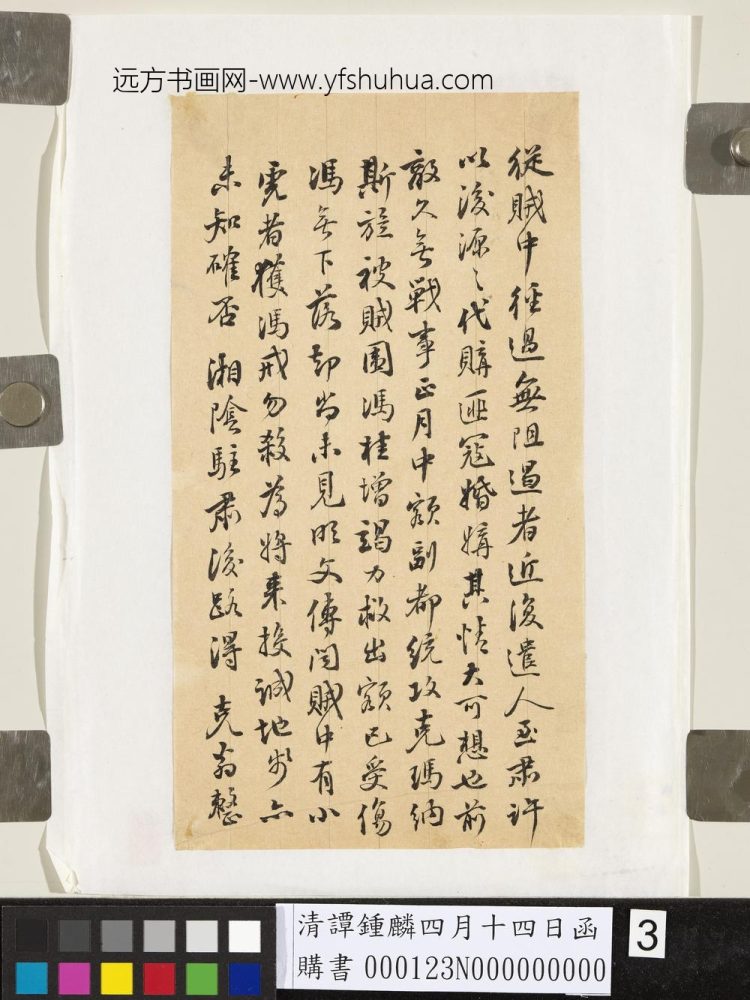 远方书画网-www.yfshuhua.com
從賊中徑過無阻遏者近復遣人至肅許
以後源〻代購匪寇婚媾其情大可想也前
敦久無戰事正月中額副都統攻克瑪納
斯旋被賊圍馮桂增竭力救出額已受傷
馮無下落却尚未見明文傳聞賊中有小
霓者獲馮戒勿殺為將來投誠地步亦
未知確否 湘陰駐肅後路得 克翁整
清譚鍾麟四月十四日函
購書 000123N000000000
3